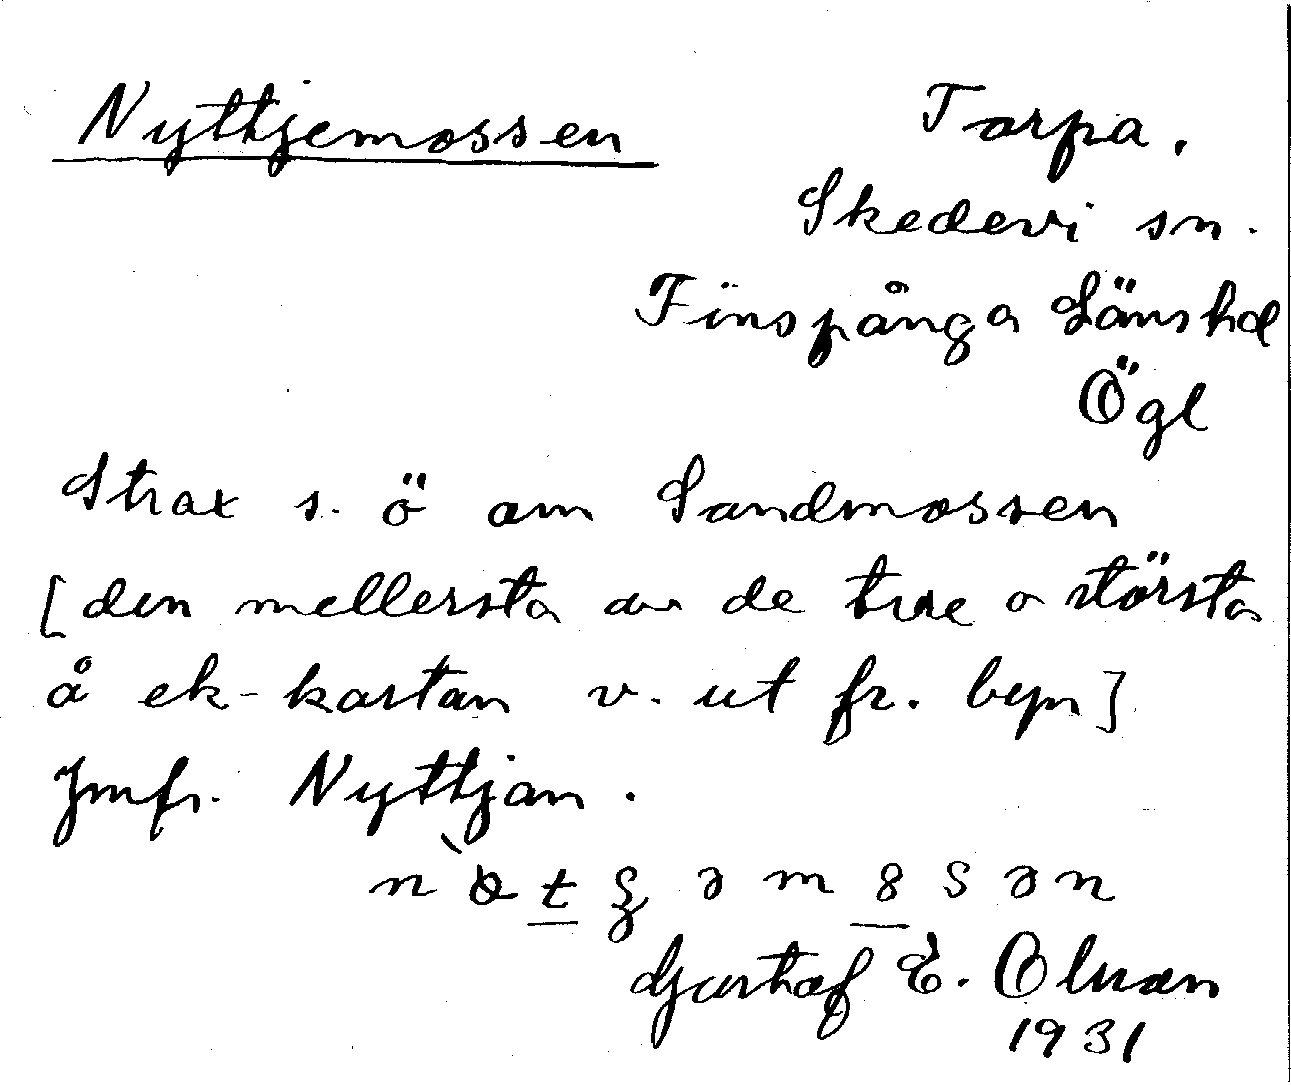 Nyttjemossen
Torpa.
Skedevi sn.
Finspånga Länshd
Ögl
Strax s. ö om Sandmossen
[den mellersta av de tre största
å ek-kartan v. ut fr. byn]
Jmfr. Nyttjan.
Gustaf E. Olsson
1931